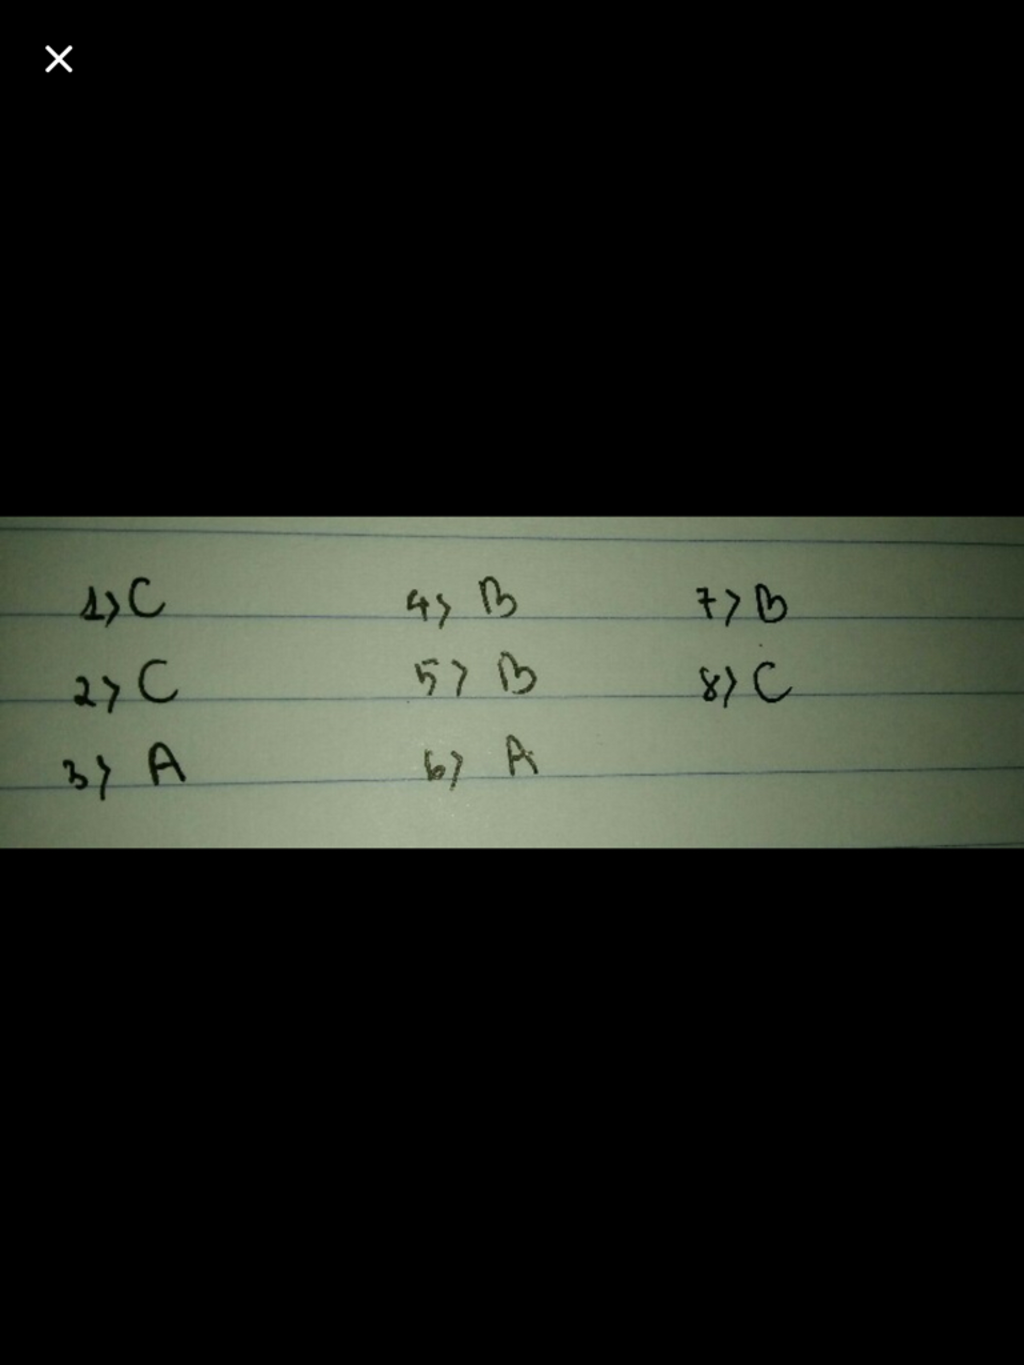 1) C
2) C
3) A
4) B
5) B
6) A
7) B
8) C